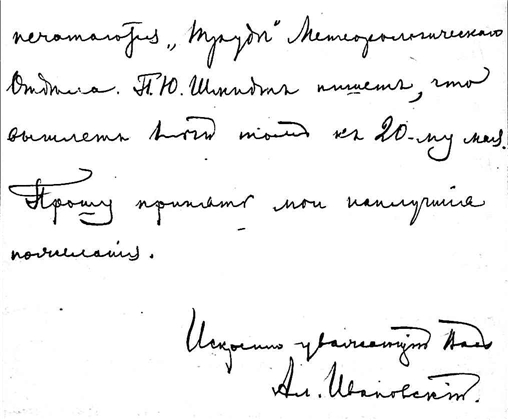 печатаются „Труды" Метеорологическаго
Отдѣла. П.Ю. Шмидтъ пишетъ, что
вышлетъ только къ 20-му мая.
Прошу принять мои наилучшія
пожеланія.
Искренно уважающій Васъ
Ал. Ивановскій.